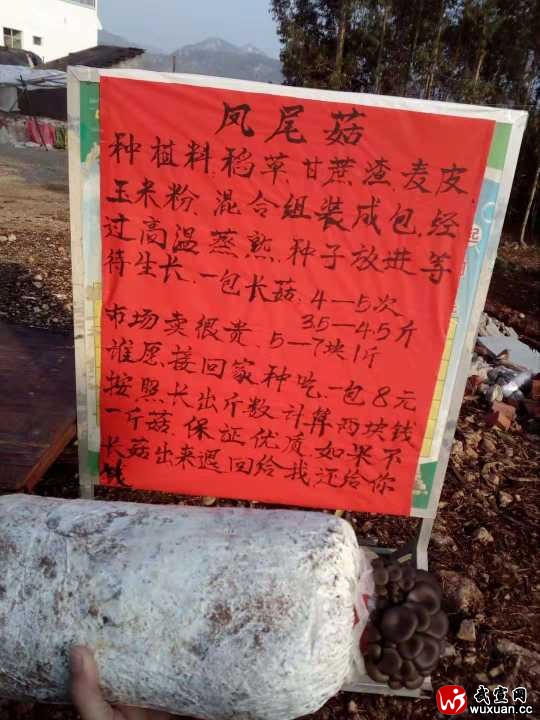 凤尾菇
种植料.稻草.甘蔗渣.麦皮.
玉米粉.混合组装成包.经
过高温蒸熟.种子放进等
待生长.一包长菇.4—5次
35—4.5斤
市场卖很贵.5—7块1斤
谁愿接回家种吃.一包8元
按照长出斤数计算两块钱
一斤菇.保证优质.如果不
长菇出来退回给我还给你
钱
武宣网
wuxuan.cc